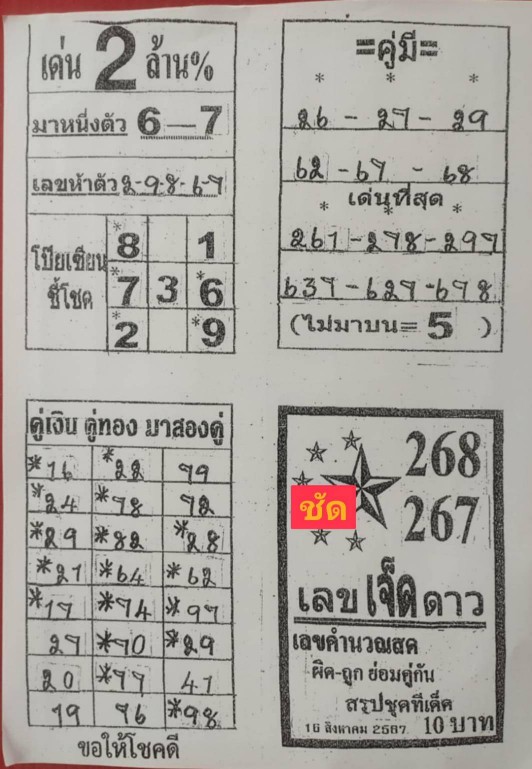 เด่น 2 ล้าน%
มาหนึ่งตัว 6-7
เลขห้าตัว 2-9-8-6-7
โป๊ยเซียน
ชี้โชค
*8 1
*7 3 *6
*2 *9
=คู่มี=
* * *
26 - 27 - 29
62 - 67 - 68
เด่นที่สุด
* * *
261 - 278 - 297
637 - 627 - 678
(ไม่มาบน = 5 )
คู่เงิน คู่ทอง มาสองคู่
*16 *22 99
*24 *78 72
*29 *82 *28
*21 *64 *62
*17 *74 *97
27 *70 *29
20 *77 41
19 76 *98
ขอให้โชคดี
268
267
ชัด
เลขเจ็ดดาว
เลขคำนวณสด
ผิด-ถูก ย่อมคู่กัน
สรุปชุดทีเด็ด
16 สิงหาคม 2567 10 บาท